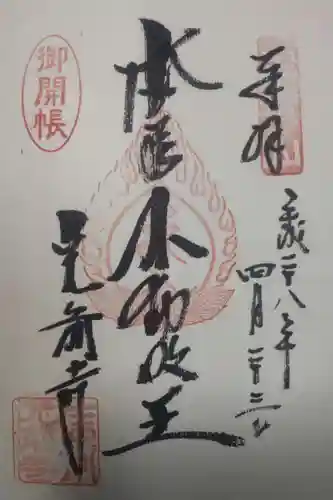 奉拝
平成二十八年
四月二十二日
本尊不動明王
御開帳
光前寺